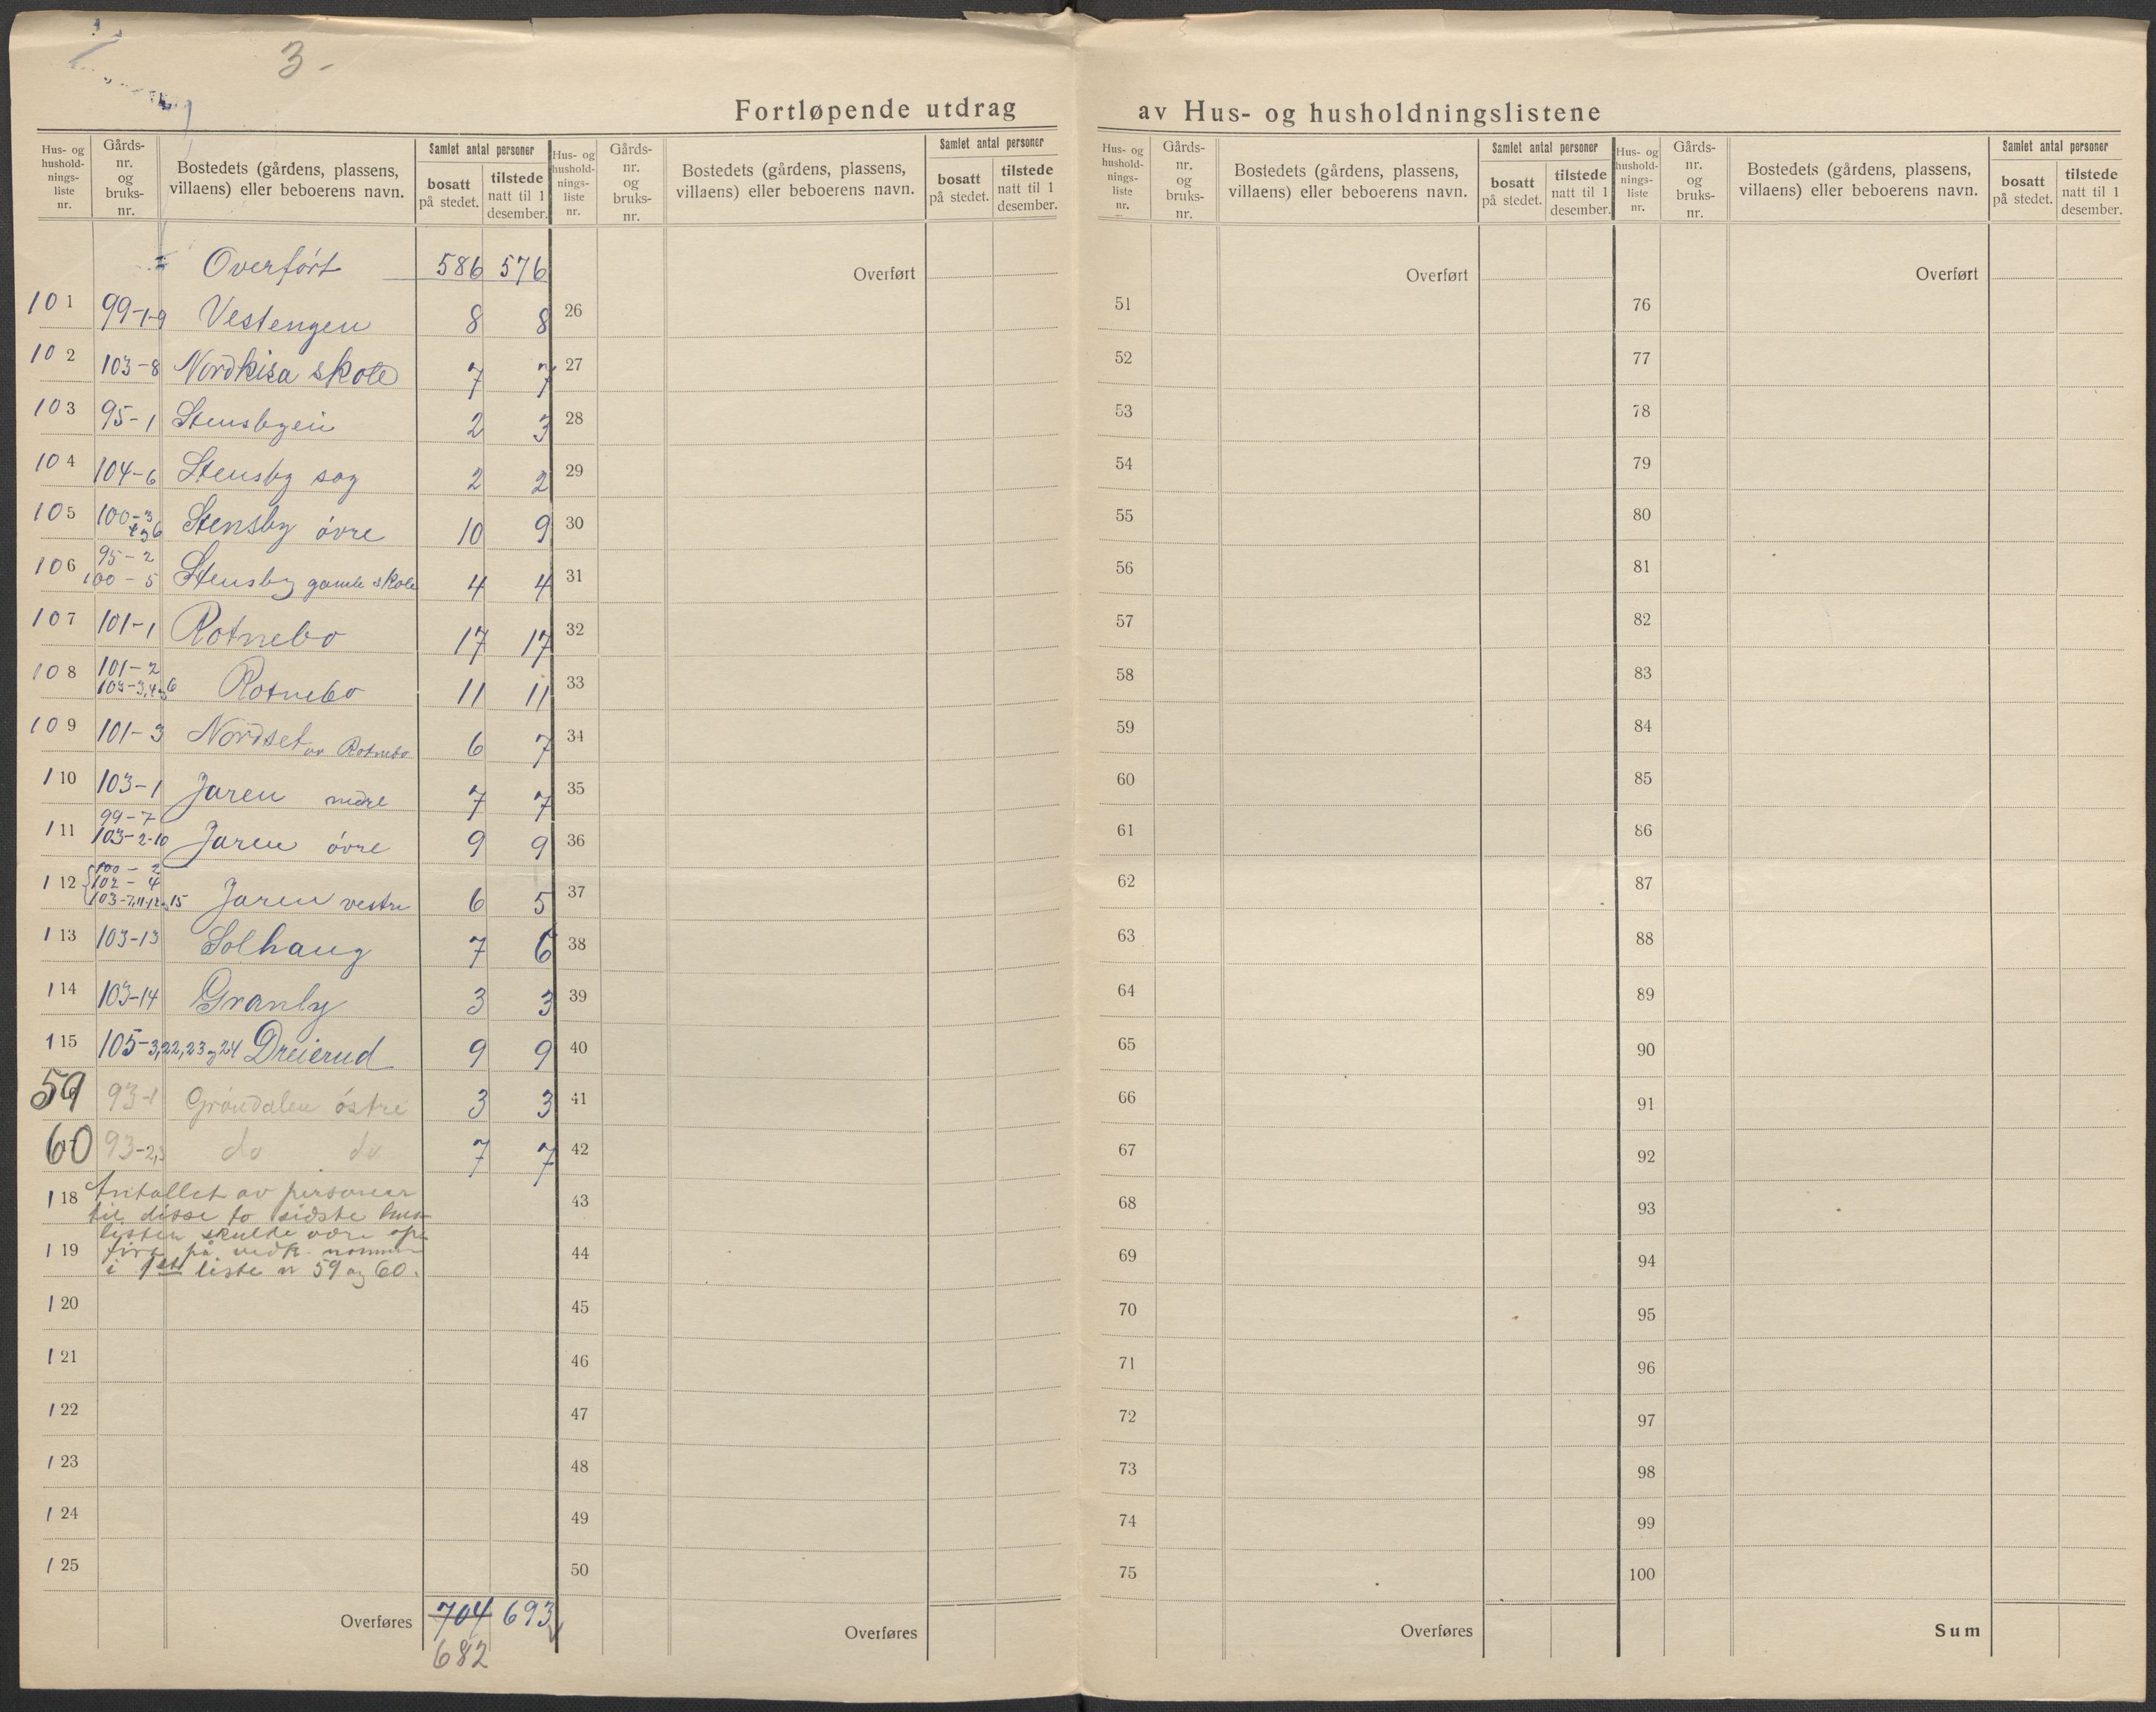 3-
Fortløpende utdrag av Hus- og husholdningslistene
Hus- og hushold-nings-liste nr. Gårds-nr. og bruks-nr. Bostedets (gårdens, plassens, villaens) eller beboerens navn. Samlet antal personer bosatt på stedet. tilstede natt til 1 desember.
Hus- og hushold-nings-liste nr. Gårds-nr. og bruks-nr. Bostedets (gårdens, plassens, villaens) eller beboerens navn. Samlet antal personer bosatt på stedet. tilstede natt til 1 desember.
Hus- og hushold-nings-liste nr. Gårds-nr. og bruks-nr. Bostedets (gårdens, plassens, villaens) eller beboerens navn. Samlet antal personer bosatt på stedet. tilstede natt til 1 desember.
Hus- og hushold-nings-liste nr. Gårds-nr. og bruks-nr. Bostedets (gårdens, plassens, villaens) eller beboerens navn. Samlet antal personer bosatt på stedet. tilstede natt til 1 desember.
Overført 586 576
101 99-1-9 Vestengen 8 8
102 103-8 Nordkisa skole 7 7
103 95-1 Stensbyeie 2 3
104 104-6 Stensby sag 2 2
105 100-3 og 6 Stensby øvre 10 9
106 95-2 100-5 Stensby gamle skole 4 4
107 101-1 Rotnebo 17 17
108 101-2 103-3,4 og 6 Rotnebo 11 11
109 101-3 Nordset av Rotnebo 6 7
110 103-1 Jaren nedre 7 7
111 99-7 103-2-10 Jaren øvre 9 9
112 100-2 102-4 103-7,11-12 og 15 Jaren vestre 6 5
113 103-13 Solhaug 7 6
114 103-14 Granly 3 3
115 105-3,22,23 og 24 Dreierud 9 9
59 93-1 Grøndalen østre 3 3
60 93-2,3 do do 7 7
118 Antallet av personer
til disse to sidste hus-
listen skulde være op-
119 ført på vedk. nommer
i 1ste liste nr 59 og 60.
120
121
122
123
124
125
Overføres 704 693
682
Overført
26
27
28
29
30
31
32
33
34
35
36
37
38
39
40
41
42
43
44
45
46
47
48
49
50
Overføres
Overført
51
52
53
54
55
56
57
58
59
60
61
62
63
64
65
66
67
68
69
70
71
72
73
74
75
Overføres
Overført
76
77
78
79
80
81
82
83
84
85
86
87
88
89
90
91
92
93
94
95
96
97
98
99
100
Sum